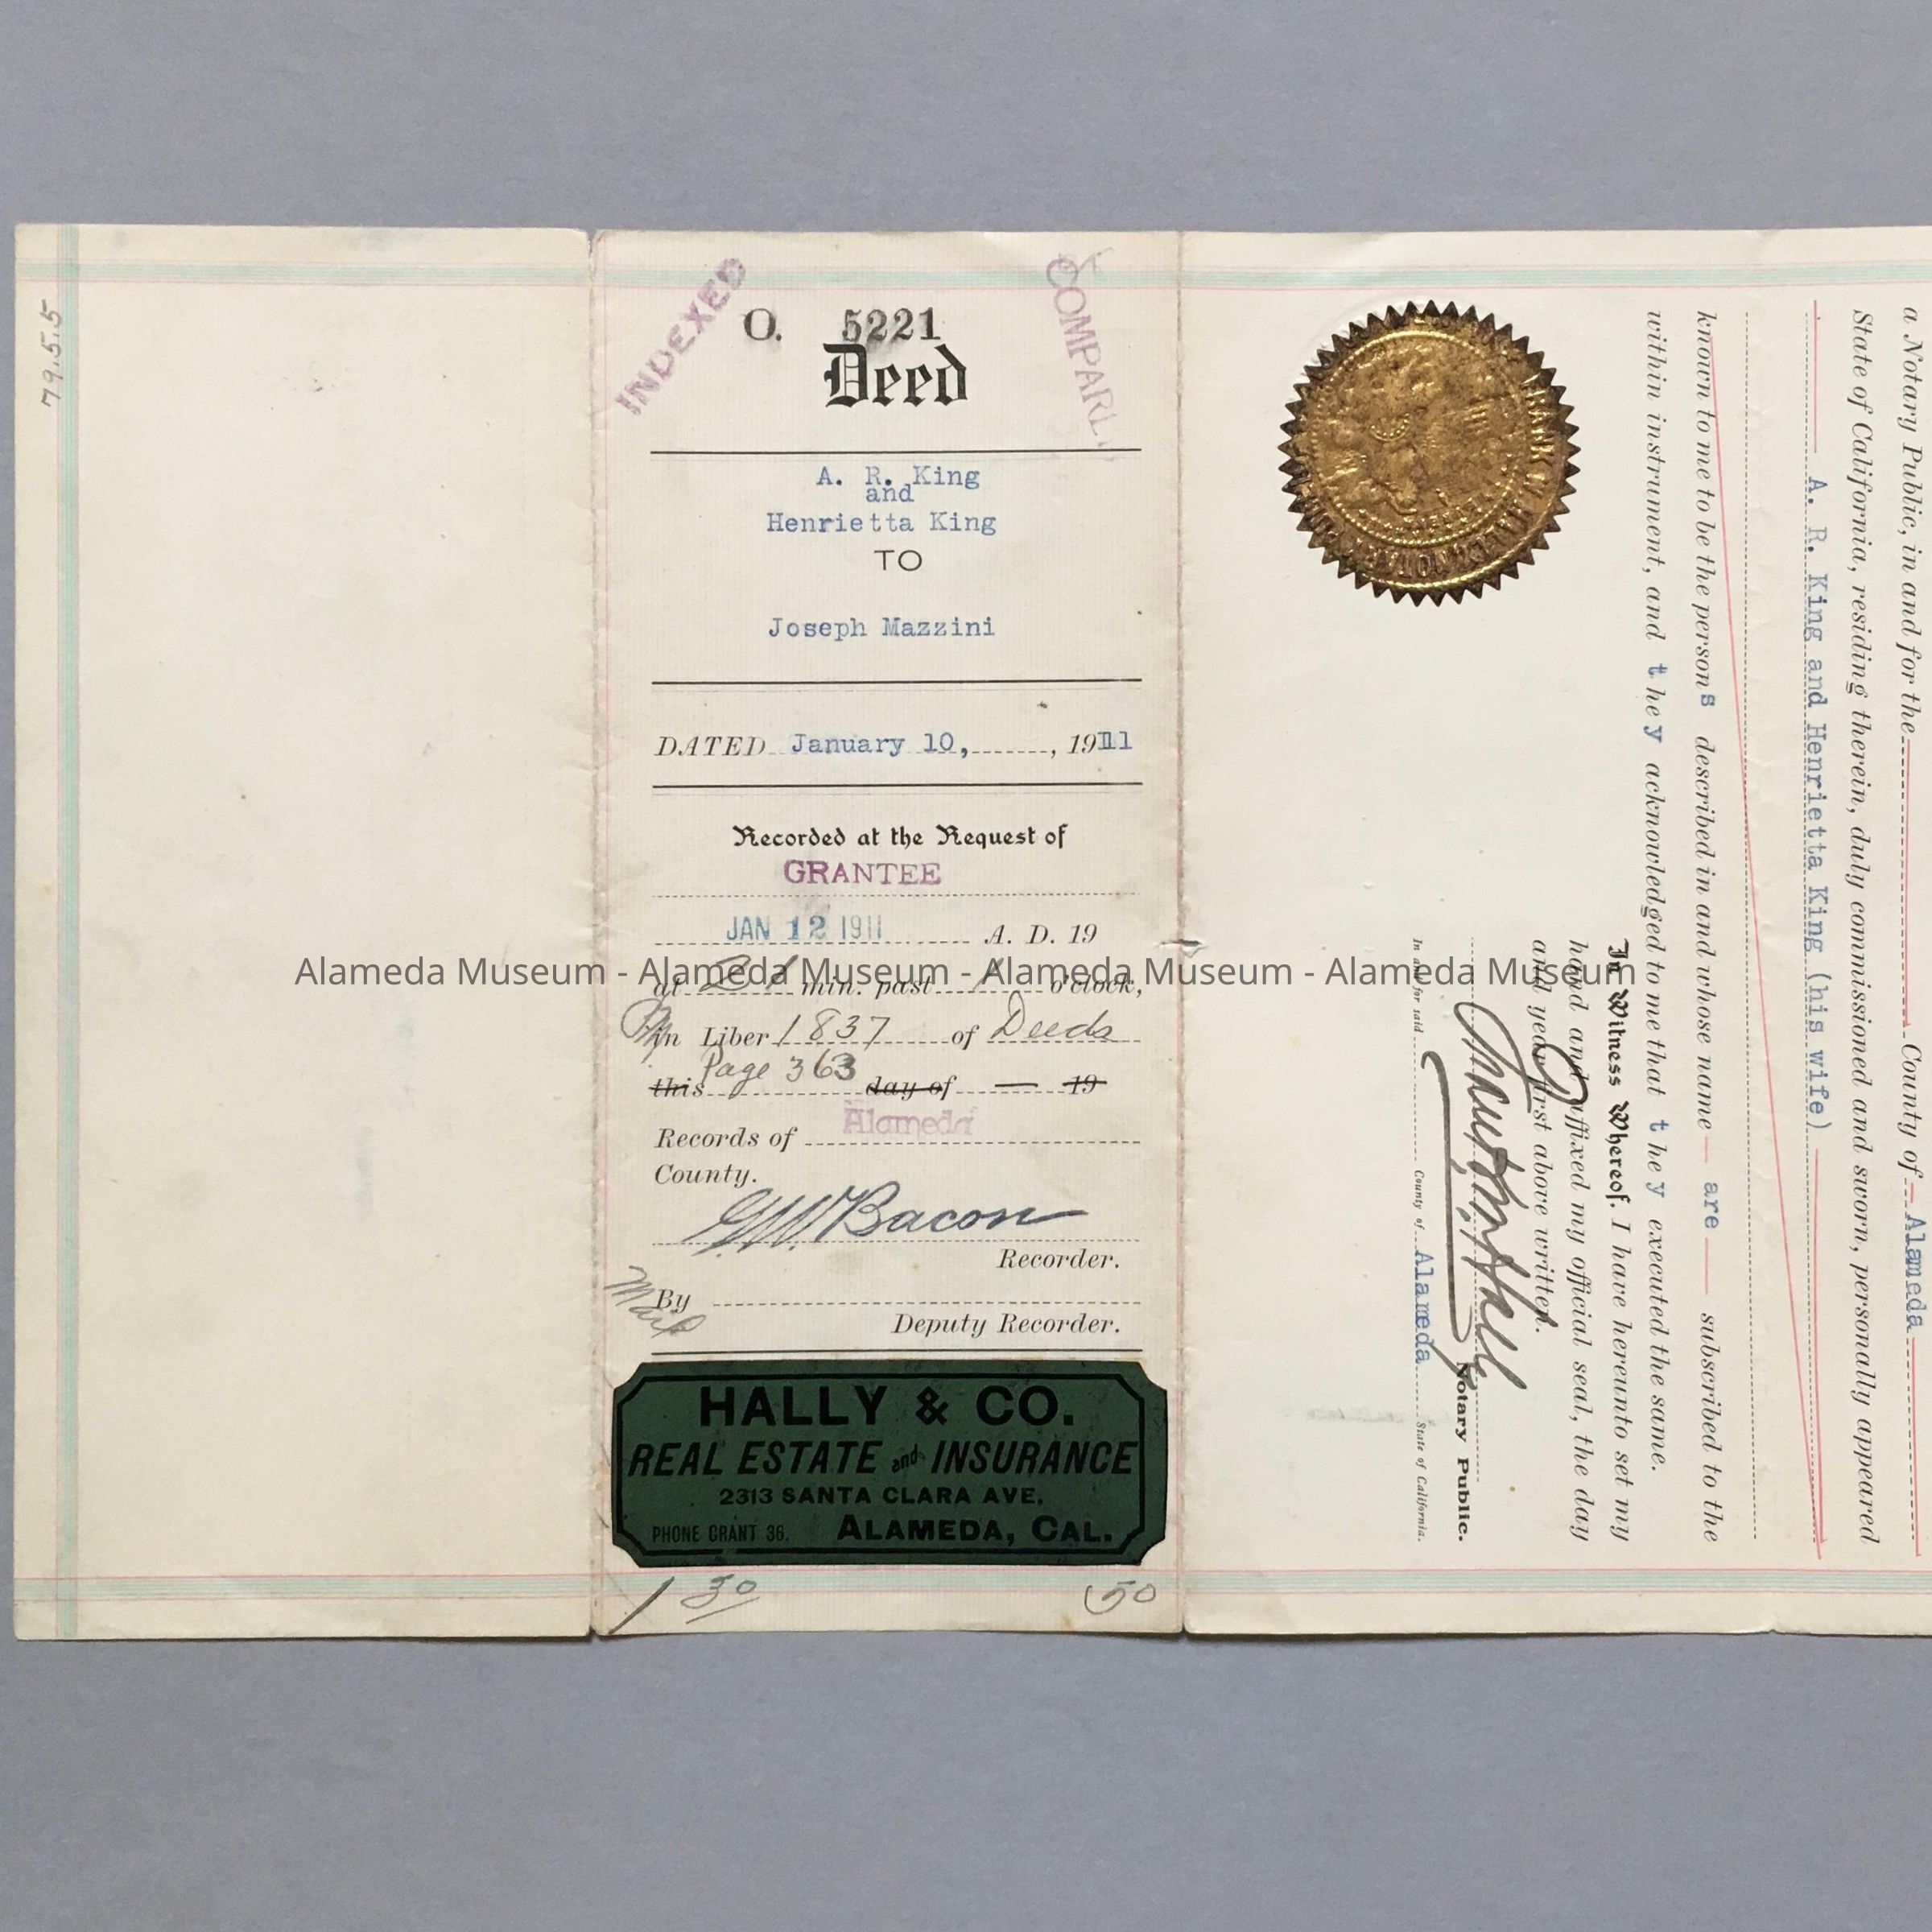 79.5.5
INDEXED
COMPARED
O. 5221
Deed
A. R. King
and
Henrietta King
TO
Joseph Mazzini
DATED January 10, , 1911
Recorded at the Request of
GRANTEE
JAN 12 1911 A. D. 19
at min. past o'clock,
in Liber 1837 of Deeds
Page 363
this day of — 19
Records of Alameda
County.
G.W. Bacon
Recorder.
By
Deputy Recorder.
HALLY & CO.
REAL ESTATE and INSURANCE
2313 SANTA CLARA AVE.
PHONE GRANT 36. ALAMEDA, CAL.
1 30
50
a Notary Public, in and for the County of Alameda
State of California, residing therein, duly commissioned and sworn, personally appeared
A. R. King and Henrietta King (his wife)
known to me to be the persons described in and whose name are subscribed to the
within instrument, and they acknowledged to me that they executed the same.
In Witness Whereof, I have hereunto set my
hand and affixed my official seal, the day
and year first above written.
Notary Public.
In and for said County of Alameda State of California.
Alameda Museum - Alameda Museum - Alameda Museum - Alameda Museum